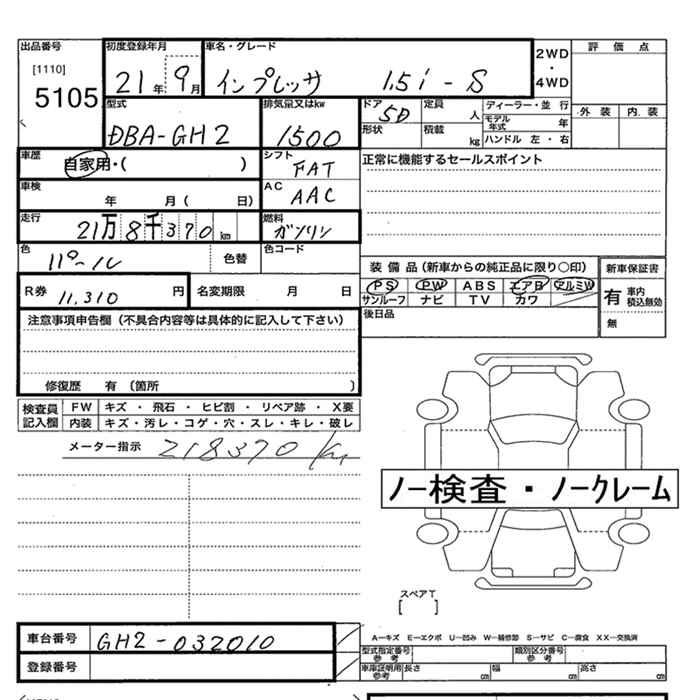 出品番号 初度登録年月 車名・グレード 2WD・4WD 評価点
[1110] 5105 21年 9月 インプレッサ 1.5i-S
型式 排気量又はkw ドア 5D 定員 人 ディーラー・並行 外装 内装
DBA-GH2 1500 形状 積載 kg モデル年式 年
ハンドル 左・右
車歴 自家用・( ) シフト FAT 正常に機能するセールスポイント
車検 年 月( 日) AC AAC
走行 21万8千370km 燃料 ガソリン
色 パール 色替 色コード
装備品(新車からの純正品に限り○印) 新車保証書
R券 11,310円 名変期限 月 日 PS PW ABS エアB アルミW 有 車内 積込無効
サンルーフ ナビ TV カワ
注意事項申告欄(不具合内容等は具体的に記入して下さい) 後日品 無
修復歴 有 〔箇所 〕
検査員記入欄 FW キズ・飛石・ヒビ割・リペア跡・X要
内装 キズ・汚レ・コゲ・穴・スレ・キレ・破レ
メーター指示 218370km
ノー検査・ノークレーム
スペアT
[ ]
車台番号 GH2-032010 A-キズ E-エクボ U-凹み W-補修跡 S-サビ C-腐食 XX-交換済
型式指定番号 参考 類別区分番号 参考
登録番号 車庫証明用 参考 長さ cm 幅 cm 高さ cm